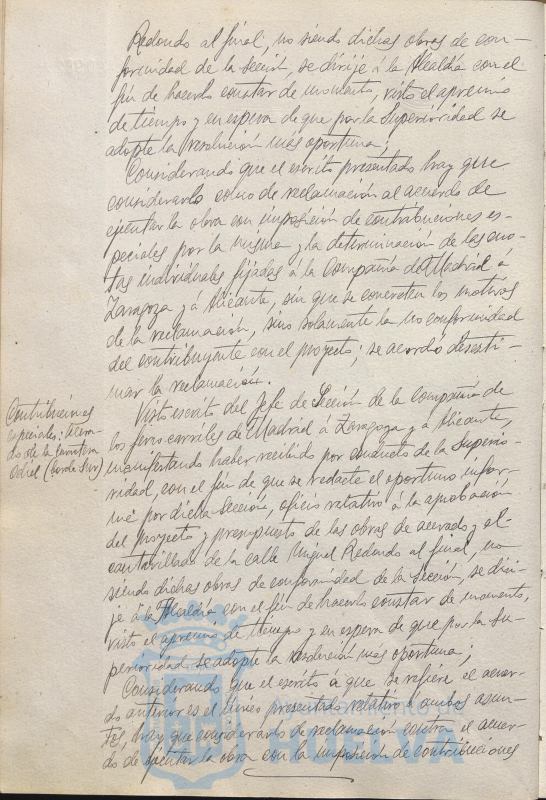 Redondo al final, no siendo dichas obras de con-
formidad de la Sección, se dirije á la Alcaldía con el
fin de hacerlo constar de momento, visto el apremio
de tiempo y en espera de que por la Superioridad se
adopte la resolución más oportuna;
Considerando que el escrito presentado hay que
considerarlo como de reclamación al acuerdo de
ejecutar la obra con imposición de contribuciones es-
peciales por la misma y la determinación de las cuo-
tas individuales fijadas á la Compañía de Madrid á
Zaragoza y á Alicante, sin que se concreten los motivos
de la reclamación, sino solamente la no conformidad
del contribuyente con el proyecto; se acordó desesti-
mar la reclamación.
Contribuciones
especiales: Acera-
do de la Carretera
Odiel (borde Sur)
Visto escrito del Jefe de Sección de la Compañía de
los ferrocarriles de Madrid á Zaragoza y á Alicante,
manifestando haber recibido por conducto de la Superio-
ridad, con el fin de que se redacte el oportuno infor-
me por dicha Sección, oficio relativo á la aprobación
del proyecto y presupuesto de las obras de acerado y al-
cantarillado de la calle Miguel Redondo al final, no
siendo dichas obras de conformidad de la Sección, se diri-
je á la Alcaldía con el fin de hacerlo constar de momento,
visto el apremio de tiempo y en espera de que por la Su-
perioridad se adopte la resolución más oportuna;
Considerando que el escrito á que se refiere el acuer-
do anterior es el único presentado relativo á ambos asun-
tos, hay que considerarlo de reclamación contra el acuer-
do de ejecutar la obra con la imposición de contribuciones